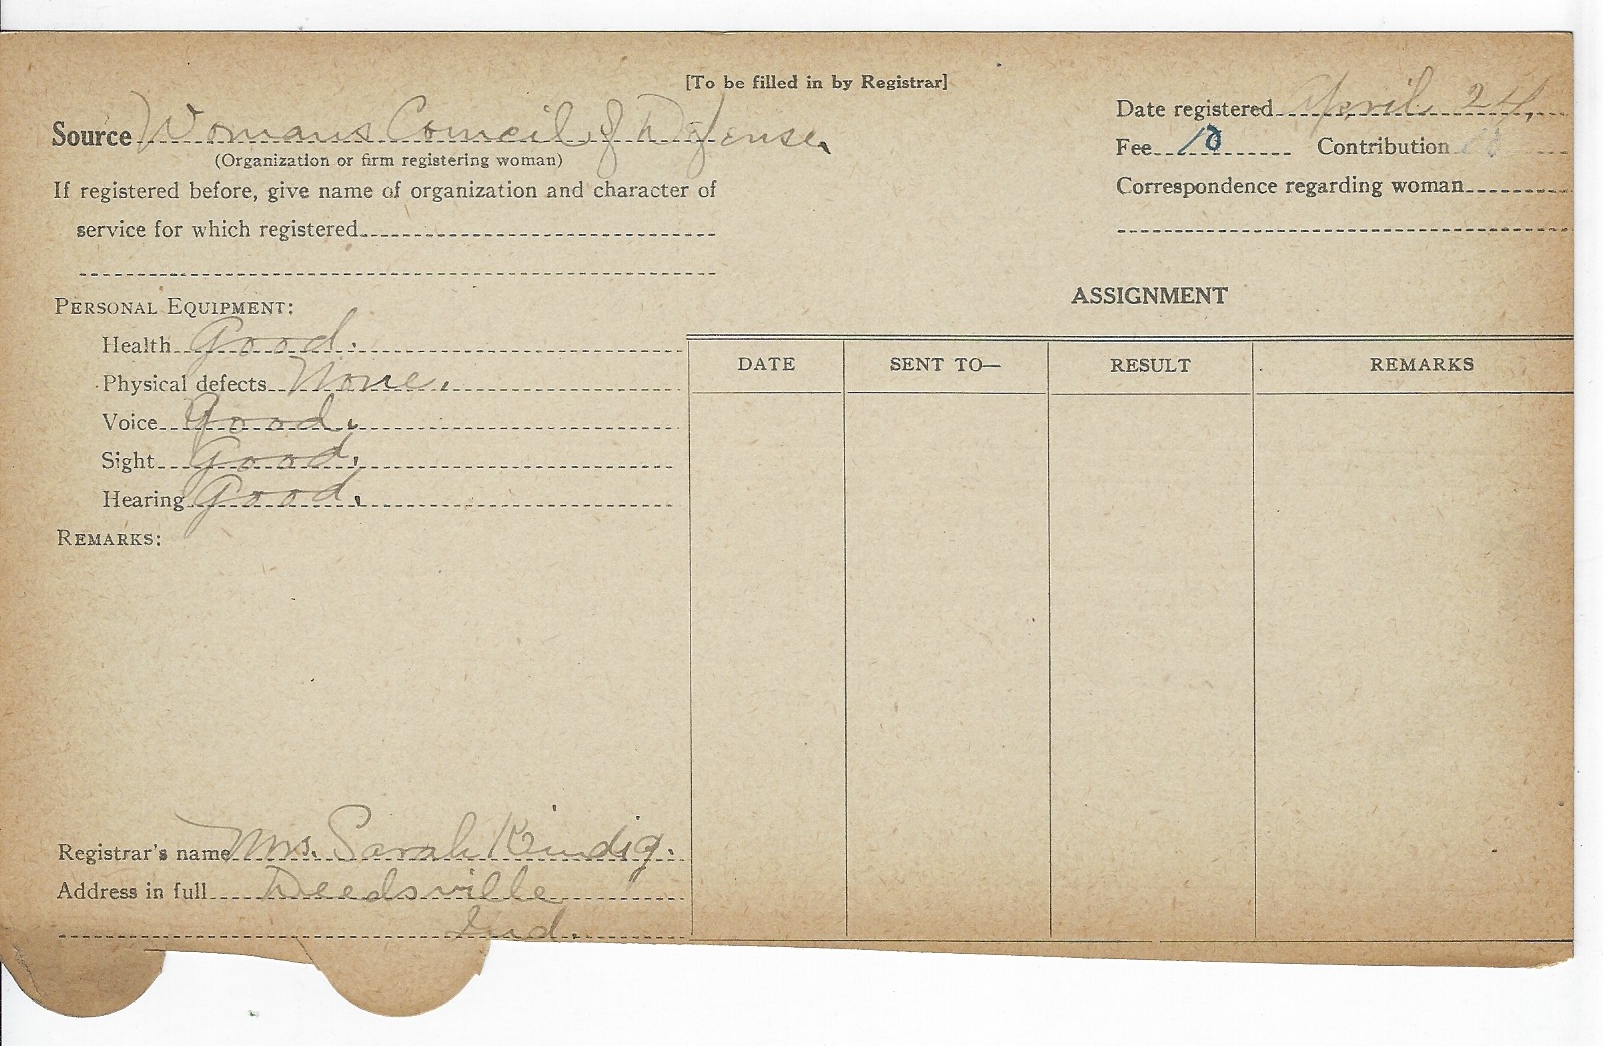 [To be filled in by Registrar]
Source Womans Council of Defense.
(Organization or firm registering woman)
If registered before, give name of organization and character of
service for which registered
Date registered April 24,
Fee 10 Contribution 10
Correspondence regarding woman
PERSONAL EQUIPMENT:
Health Good.
Physical defects None.
Voice Good.
Sight Good.
Hearing Good.
REMARKS:
ASSIGNMENT
DATE SENT TO— RESULT REMARKS
Registrar's name Mrs. Sarah Kindig.
Address in full Deedsville
Ind.